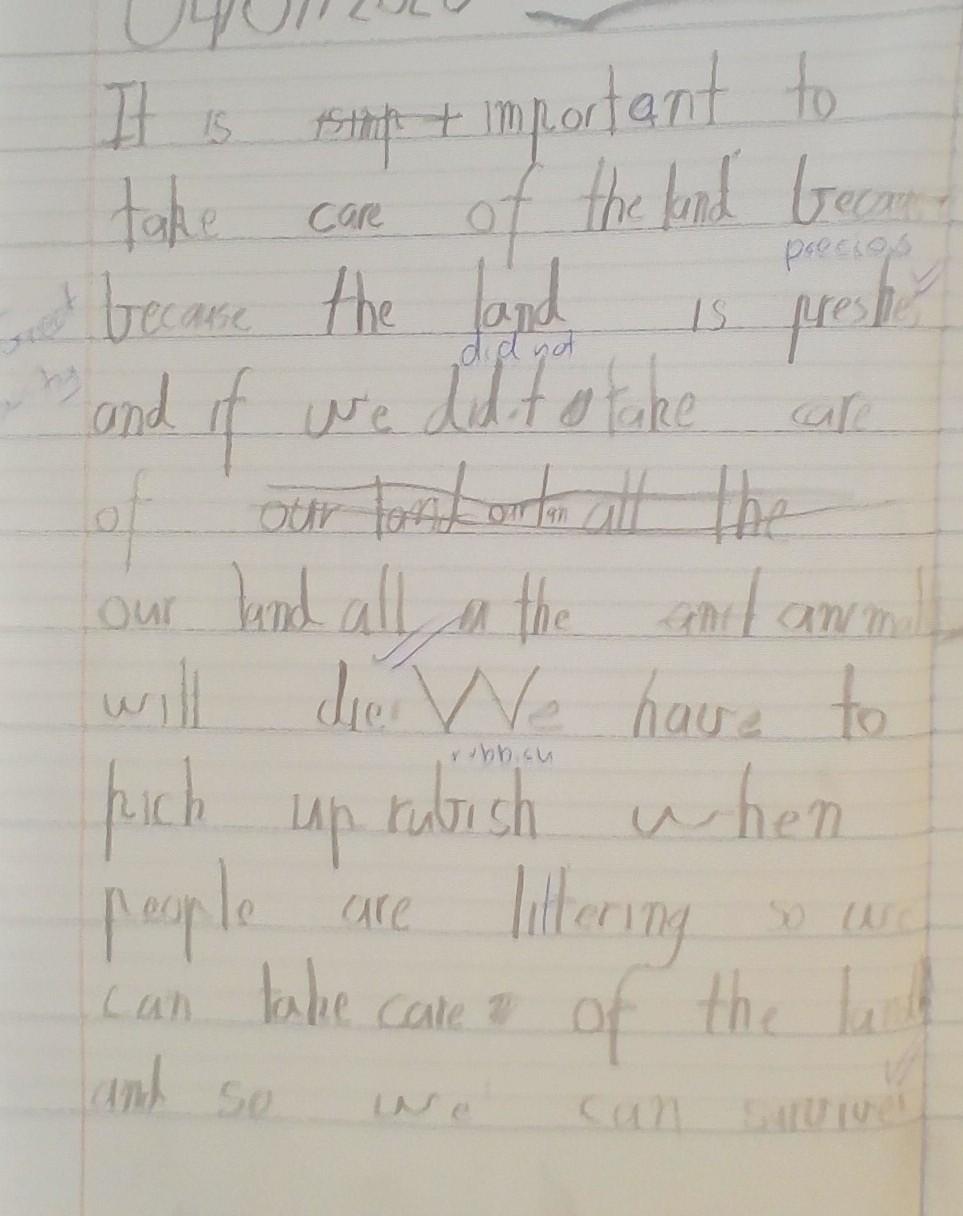 It is important to
take care of the land
precios
because the land is preshe
did not
and if we did.t take care
of
our land all the animal
will die. We have to
rubbish
pick up rubish when
people are littering so we
can take care of the land
and so we can survive